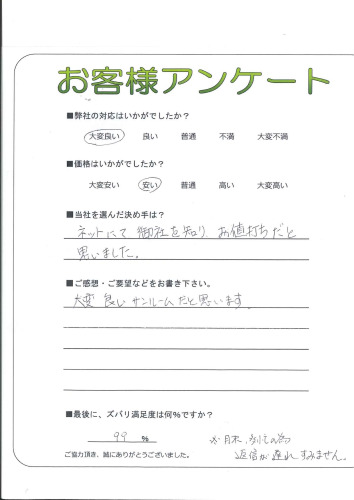 お客様アンケート
■弊社の対応はいかがでしたか？
大変良い 良い 普通 不満 大変不満
■価格はいかがでしたか？
大変安い 安い 普通 高い 大変高い
■当社を選んだ決め手は？
ネットにて御社を知り、お値打ちだと
思いました。
■ご感想・ご要望などをお書き下さい。
大変良いサンルームだと思います。
■最後に、ズバリ満足度は何％ですか？
99 ％
※月末、
返信が遅れすみません。
ご協力頂き、誠にありがとうございました。